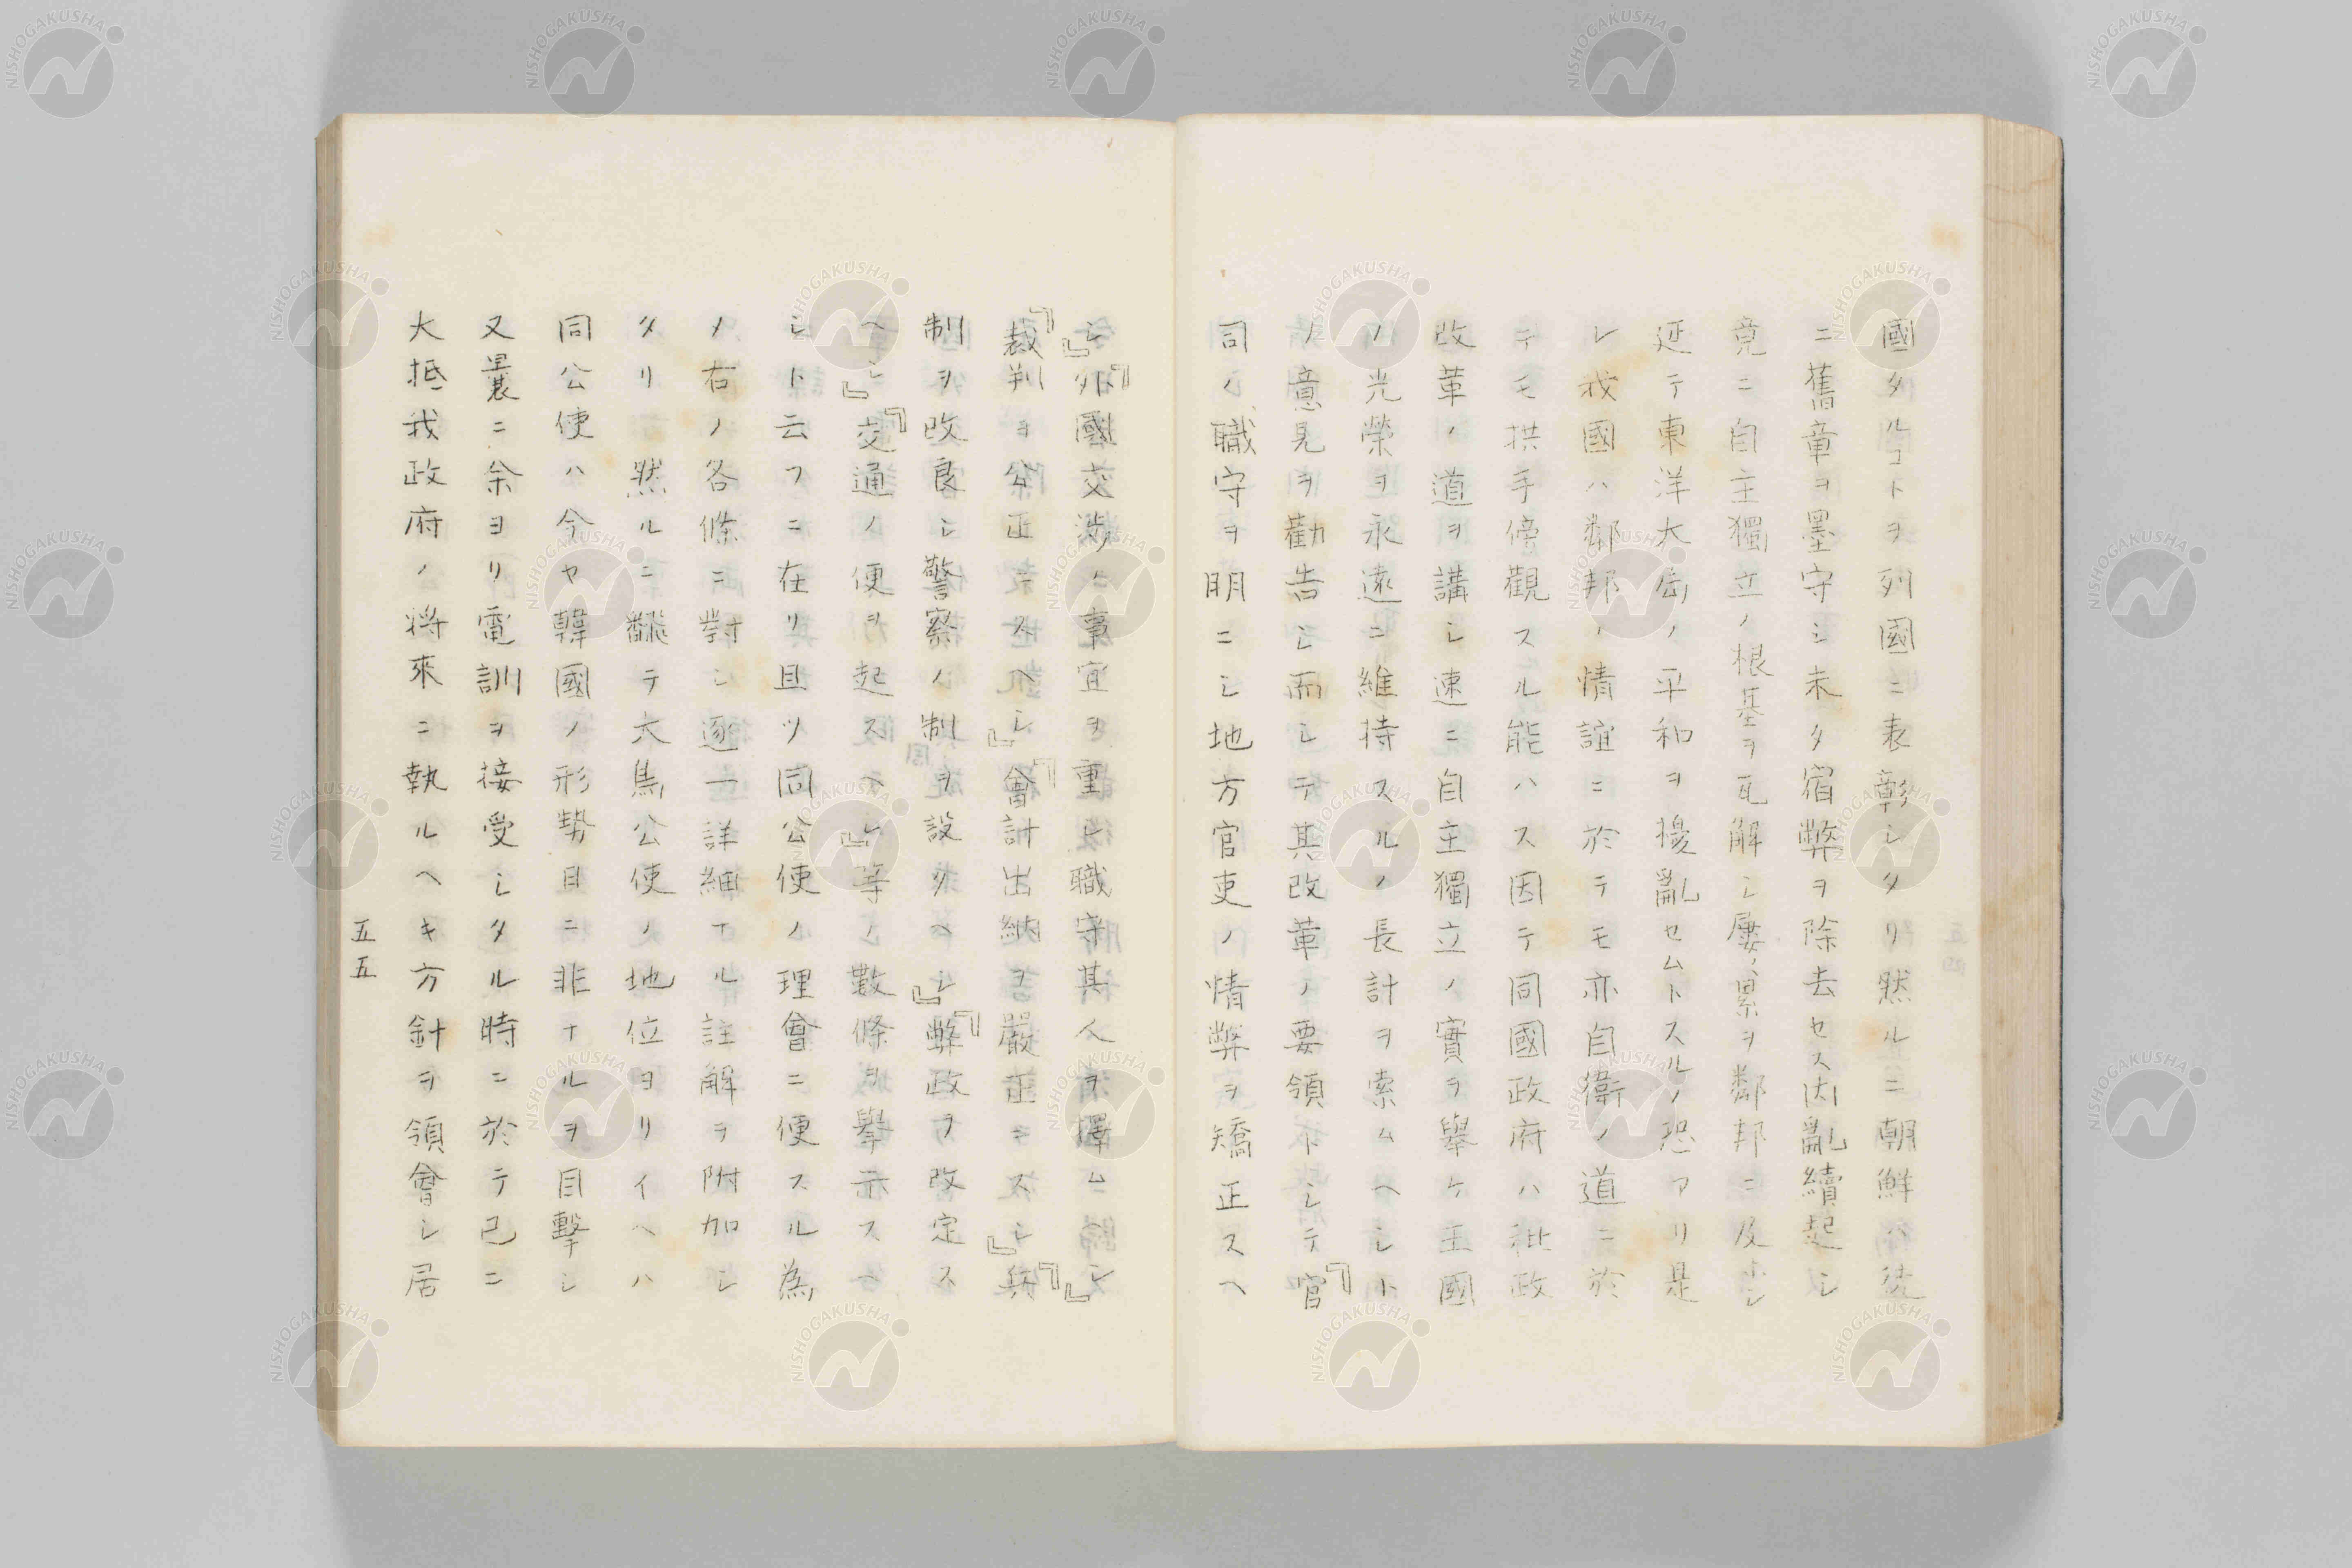 國タルコトヲ列國ニ表彰シタリ然ルニ朝鮮ハ徒
ニ舊章ヲ墨守シ未タ宿弊ヲ除去セス因亂續起シ
竟ニ自主獨立ノ根基ヲ瓦解シ屢々累ヲ鄰邦ニ及ホシ
延テ東洋大局ノ平和ヲ擾亂セムトスルノ恐アリ是
レ我國ハ鄰邦ノ情誼ニ於テモ亦自衞ノ道ニ於
テモ拱手傍觀スル能ハス因テ同國政府ハ秕政
改革ノ道ヲ講シ速ニ自主獨立ノ實ヲ擧ケ王國
ノ光榮ヲ永遠ニ維持スルノ長計ヲ索ムヘシト
ノ意見ヲ勸告シ而シテ其改革ノ要領トシテ『官
司ノ職守ヲ明ニシ地方官吏ノ情弊ヲ矯正スヘ
シ』『外國交渉ノ事宜ヲ重シ職守其人ヲ擇ムヘシ』
『裁判ヲ公正ニスヘシ』『會計出納ヲ嚴正ニスヘシ』『兵
制ヲ改良シ警察ノ制ヲ設クヘシ』『弊政ヲ改定ス
ヘシ』『交通ノ便ヲ起スヘシ』等ノ數條ヲ擧示スヘ
シト云フニ在リ且ツ同公使ノ理會ニ便スル為
ノ右ノ各條ニ對シ逐一詳細ナル註解ヲ附加シ
タリ然ルニ飜テ大鳥公使ノ地位ヨリイヘハ
同公使ハ今ヤ韓國ノ形勢日ニ非ナルヲ目擊シ
又曩ニ余ヨリ電訓ヲ接受シタル時ニ於テ已ニ
大抵我政府ノ將來ニ執ルヘキ方針ヲ領會シ居
五五
NISHOGAKUSHA